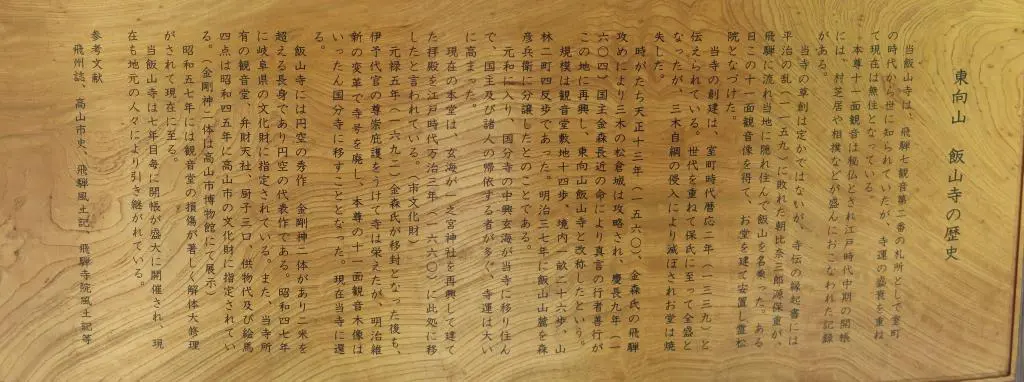 東向山 飯山寺の歴史
当飯山寺は、飛騨七観音第二番の札所として室町
の時代から世に知られていたが、寺運の盛衰を重ね
て現在は無住となっている。
本尊十一面観音は秘仏とされ江戸時代中期の開帳
には、村芝居や相撲などが盛んにおこなわれた記録
がある。
当寺の草創は定かではないが、寺伝の縁起書には
平治の乱（一一五九）に敗れた朝比奈三郎源保重が、
飛騨に流れ当地に隠れ住んで飯山を名乗った。ある
日この十一面観音像を得て、お堂を建て安置し霊松
院となづけた。
当寺の創建は、室町時代暦応二年（一三三九）と
伝えられている。世代を重ねて保氏に至って全盛と
なったが、三木自綱の侵入により滅ぼされお堂は焼
失した。
時がたち天正十三年（一五六〇）、金森氏の飛騨
攻めにより三木の松倉城は攻略され、慶長九年（一
六〇四）国主金森長近の命により真言の行者善行が
この地に再興し、東向山飯山寺と改称したという。
規模は観音堂敷地十四歩、境内一畝二十六歩、山
林二町四反歩であった。明治三七年に飯山山麓を森
彦兵衛に分譲したとのことである。
元和に入り、国分寺の中興玄海が当寺に移り住ん
で、国主及び諸人の帰依する者が多く、寺運は大い
に高まった。
現在の本堂は、玄海が一之宮神社を再興して建て
た拝殿を江戸時代万治三年（一六六〇）に此処に移
したと言われている。（市文化財）
元禄五年（一六九二）金森氏が移封となった後も、
伊予代官の尊崇庇護をうけて寺は栄えたが、明治維
新の変革で寺号を廃し、本尊の十一面観音木像は
いったん国分寺に移すこととなった。現在当寺に還
る。
飯山寺には円空の秀作 金剛神二体があり二米を
超える長身であり円空の代表作である。昭和四七年
に岐阜県の文化財に指定されている。また、当寺所
有の観音堂、弁財天社、厨子三口、供物代及び絵馬
四点は昭和四五年に高山市の文化財に指定されてい
る。（金剛神一体は高山市博物館にて展示）
昭和五七年には観音堂の損傷が著しく解体大修理
がされて現在に至る。
当飯山寺は七年目毎に開帳が盛大に開催され、現
在も地元の人々により引き継がれている。
参考文献
飛州志、高山市史、飛騨風土記、飛騨寺院風土記等